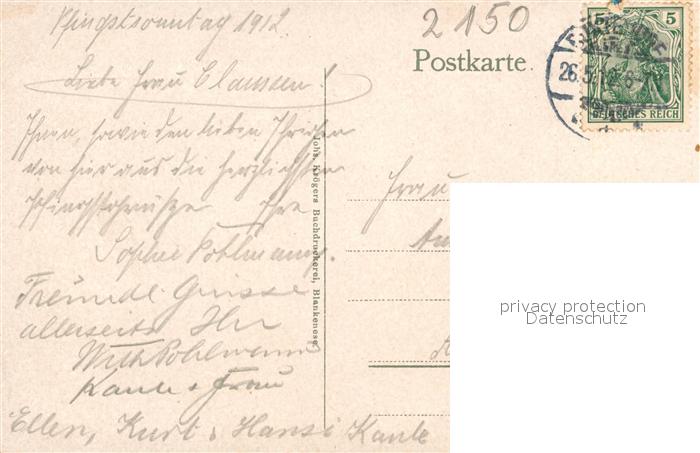 Pfingstsonntag 1912
2150
Postkarte
26.5.12
5 5
DEUTSCHES REICH
Liebe Frau Claussen!
Ihnen, sowie den lieben Ihrigen
von hier aus die herzlichsten
Pfingstgrüße Ihre
Sophie Pohlmann.
Freundl. Grüsse
allerseits Ihr
Wilh Pohlmann
Kante & Frau
Ellen, Kurt & Hansi Kante
Johs. Krögers Buchdruckerei, Blankenese.
Frau
privacy protection
Datenschutz